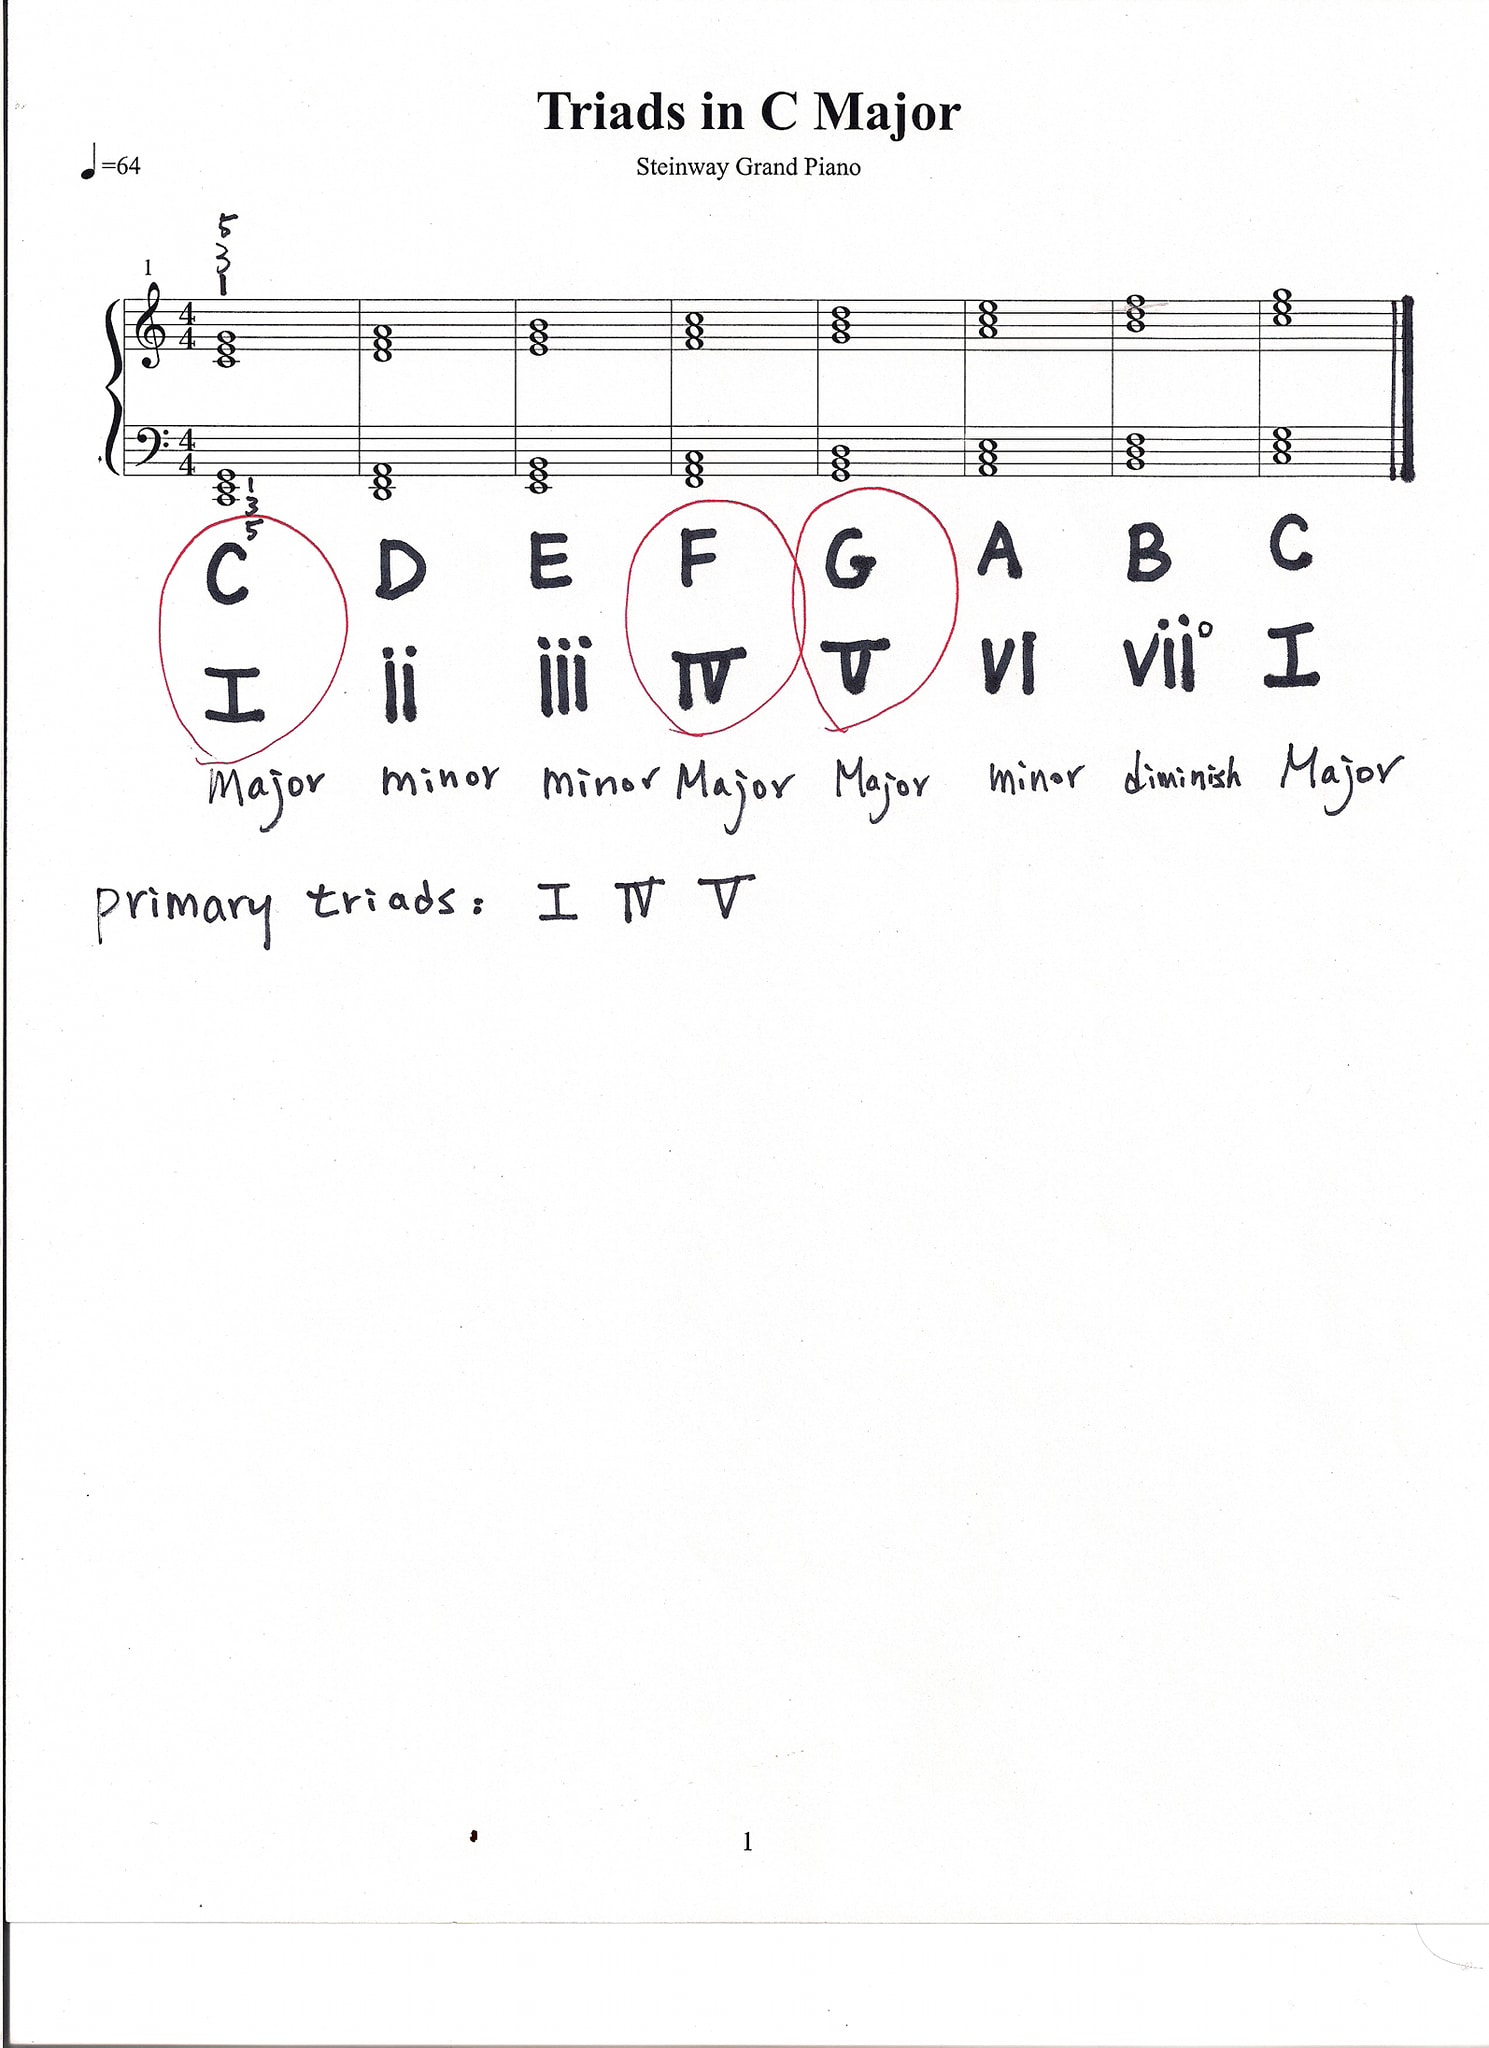 Triads in C Major
♩=64
Steinway Grand Piano
5
3
1
1
4 4
4 4
1
3
5
C D E F G A B C
I ii iii IV V VI vii° I
Major minor minor Major Major minor diminish Major
primary triads: I IV V
1